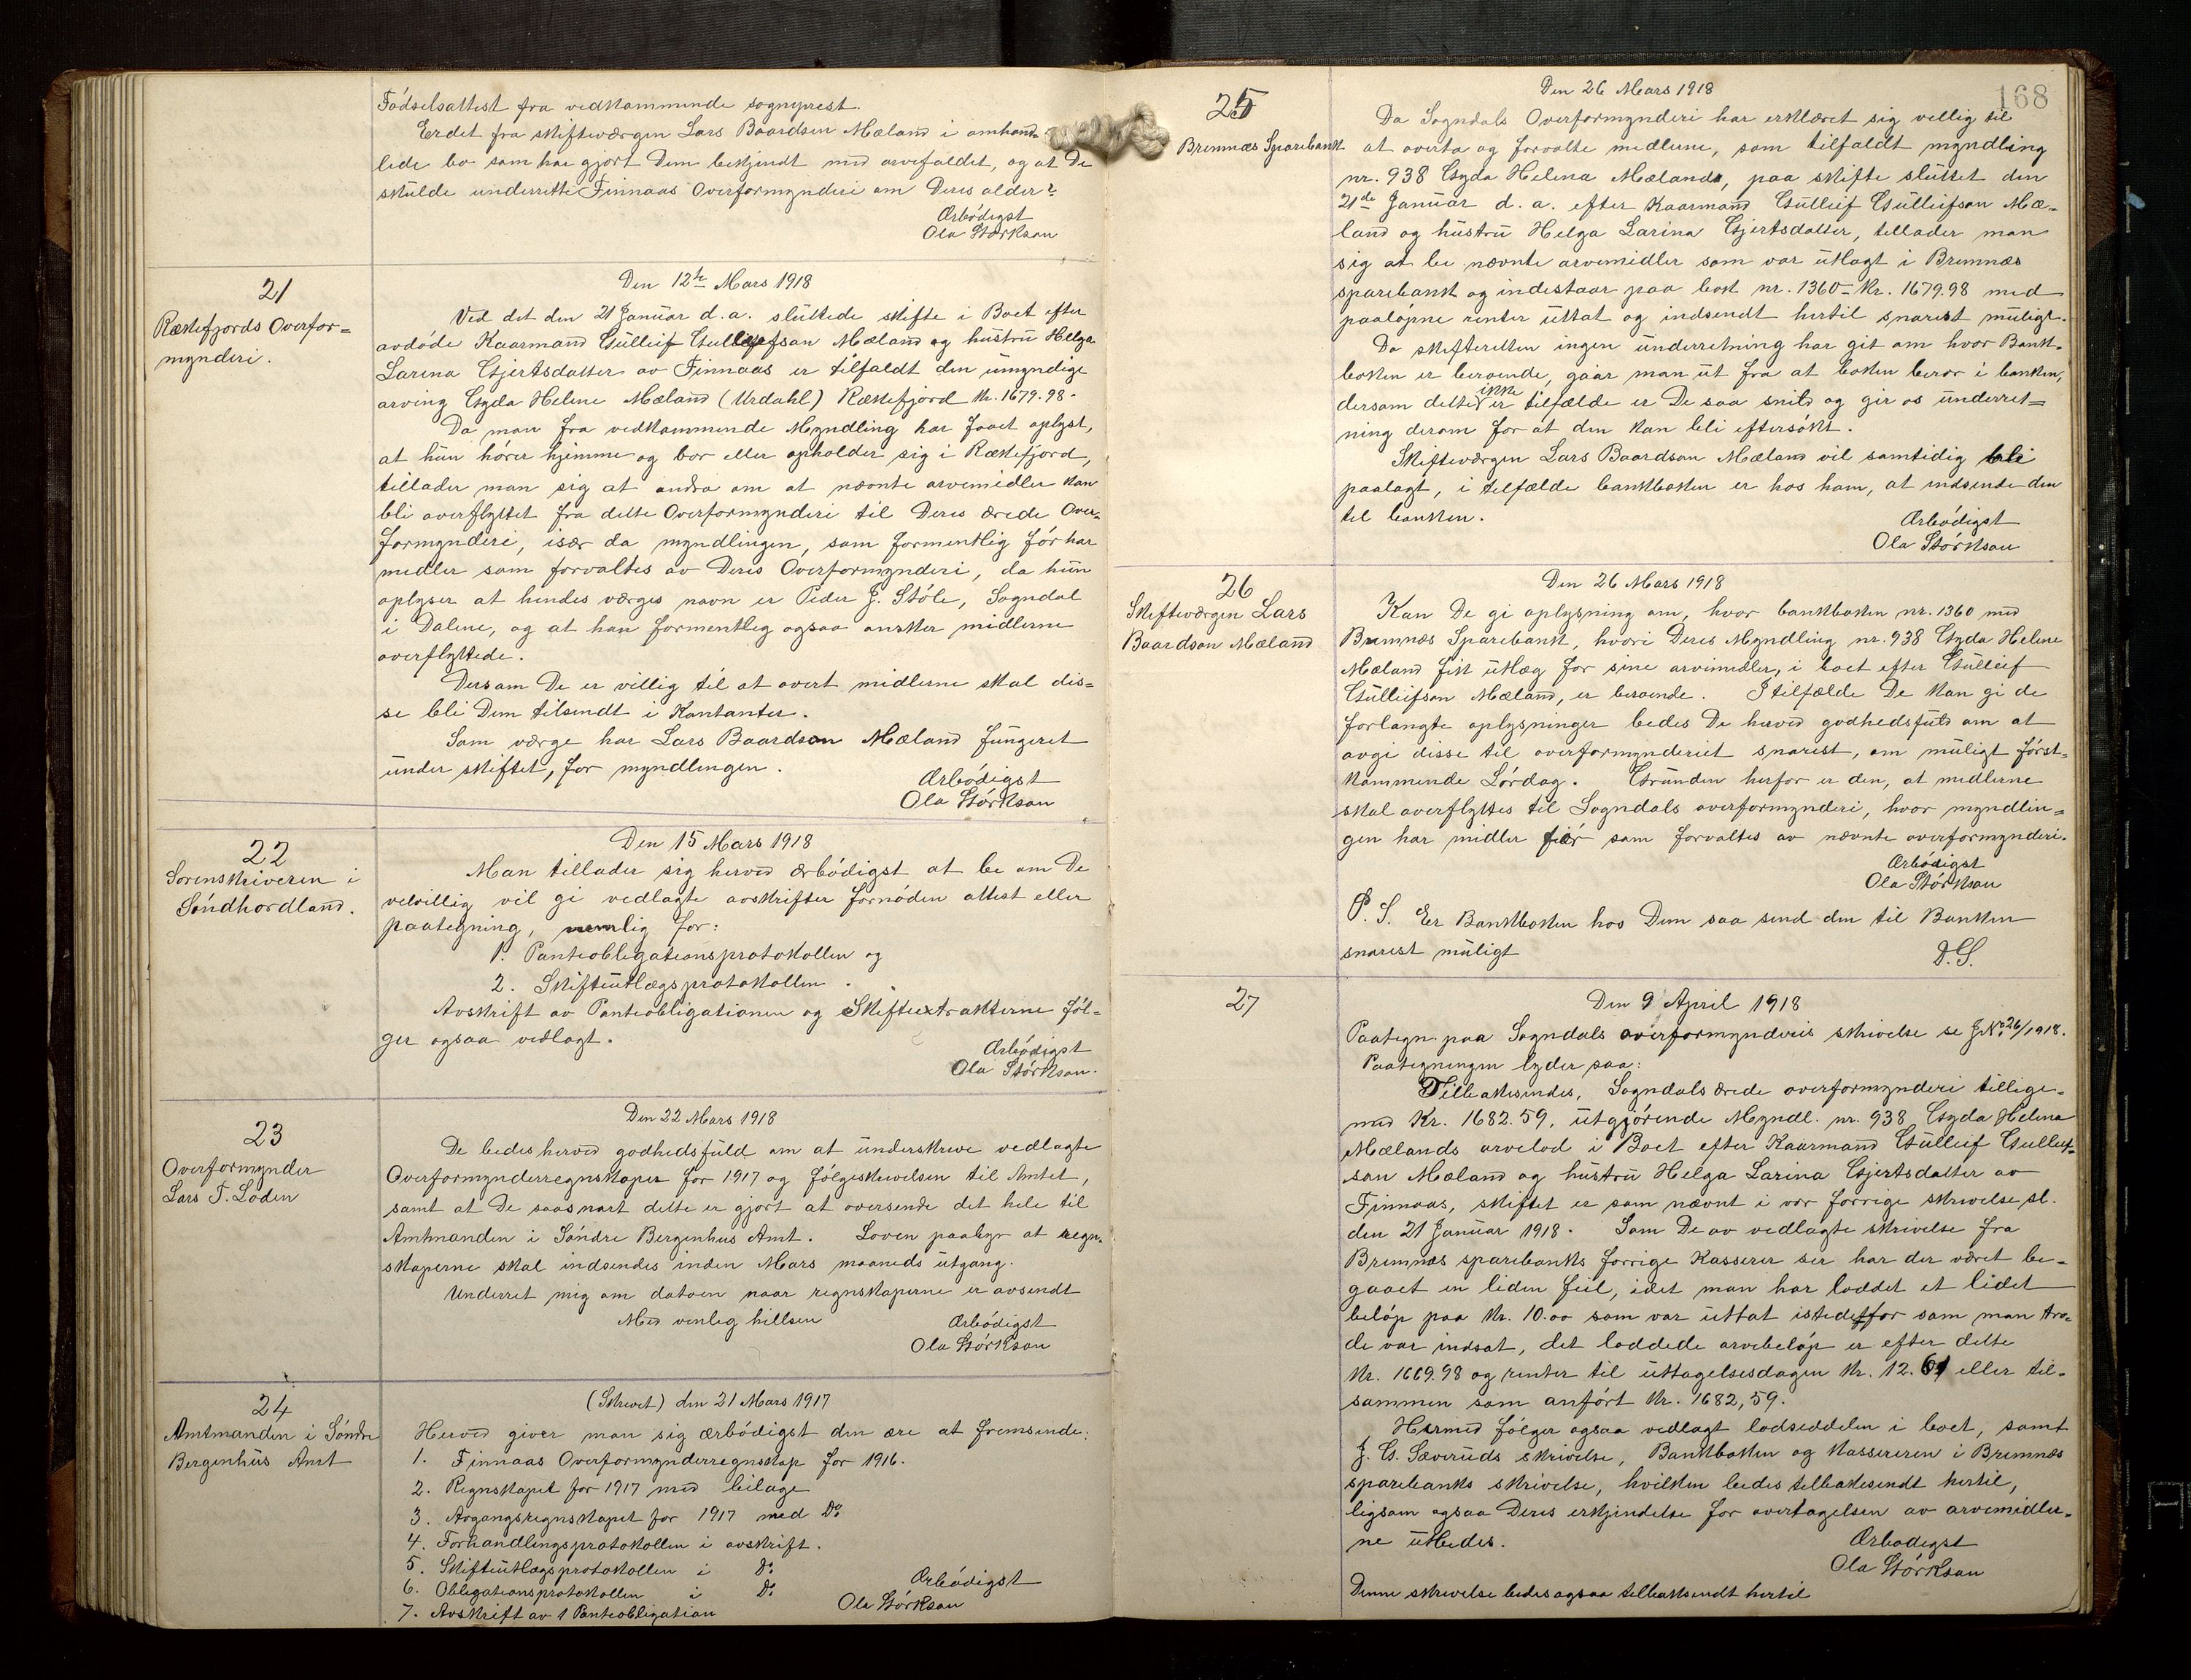 Födselsattest fra vedkommende sogneprest.
Er det fra skifteværgen Lars Baardsen Mæland i omhand-
lede bo som har gjort Dem bekjendt med arvefaldet, og at De
skulde underrette Finnaas Overformynderi om Deres alder?
Ærbödigst
Ola Störkson
21
Rækefjords Overfor=
mynderi.
Den 12te Mars 1918
Ved det den 21 Januar d.a. sluttede skifte i Boet efter
avdöde Kaarmand Gulleif Gulleifson Mæland og hustru Helga
Larina Gjertsdatter av Finnaas er tilfaldt den umyndige
arving Gyda Helene Mæland (Urdahl) Rækefjord kr. 1679.98.
Da man fra vedkommende Myndling har faaet oplyst,
at hun hörer hjemme og bor eller opholder sig i Rækefjord,
tillader man sig at andra om at nævnte arvemidler kan
bli overflyttet fra dette Overformynderi til Deres ærede Over-
formynderi, især da myndlingen, som formentlig för har
midler som forvaltes av Deres Overformynderi, da hun
oplyser at hendes værges navn er Peder J. Stöle, Sogndal
i Dalene, og at han formentleg ogsaa ønsker midlerne
overflyttede.
Dersom De er villig til at overt midlerne skal dis=
se bli Dem tilsendt i Kontanter.
Som værge har Lars Baardson Mæland fungeret
under skiftet, for myndlingen.
Ærbödigst
Ola Störkson
22
Sorenskriveren i
Söndhordland.
Den 15 Mars 1918
Man tillader sig herved ærbödigst at be om De
velvillig vil gi vedlagte avskrifter fornöden attest eller
paategning, nemlig for:
1. Panteobligationsprotokollen og
2. Skifteutlægsprotokollen.
Avskrift av Panteobligationen og Skifteextrakterne föl=
ger ogsaa vedlagt.
Ærbödigst
Ola Störkson.
23
Overformynder
Lars T. Löden
Den 22 Mars 1918
De bedes herved godhedsfuld om at underskrive vedlagte
Overformynderregnskaper for 1917 og fölgeskrivelsen til Amtet,
samt at De saasnart dette er gjort at oversende det hele til
Amtmanden i Söndre Bergenhus Amt. Loven paabyr at regn-
skaperne skal indsendes inden Mars maaneds utgang.
Underret mig om datoen naar regnskaperne er avsendt
Med venleg hilsen
Ærbödigst
Ola Störkson
24
Amtmanden i Söndre
Bergenhus Amt
(Skrevet) den 21 Mars 1917
Herved giver man sig ærbödigst den ære at fremsende:
1. Finnaas Overformynderregnskap for 1916.
2. Regnskapet for 1917 med bilage
3. Avgangsregnskapet for 1917 med Do
4. Forhandlingsprotokollen i avskrift.
5. Skifteutlægsprotokollen i Do
6. Obligationsprotokollen i Do
7. Avskrift av 1 Panteobligation
Ærbödigst
Ola Störkson
168
25
Bremnæs Sparebank
Den 26 Mars 1918
Da Sogndals Overformynderi har erklæret sig vellig til
at overta og forvalte midlerne, som tilfaldt myndling
nr. 938 Gyda Helena Mælands, paa skifte sluttet den
21de Januar d. a. efter Kaarmand Gulleif Gulleifson Mæ-
land og hustru Helga Larina Gjertsdatter, tillader man
sig at be nævnte arvemidler som var utlagt i Bremnæs
sparebank og indestaar paa bok nr. 1360 - Kr. 1679.98 med
paalöpne renter uttat og indsendt hertil snarest muligt.
Da skifteretten ingen underretning har git om hvor Bank-
boken er beroende, gaar man ut fra at boken beror i banken,
dersom dette ikke er tilfælde er De saa snild og gir os underret=
ning derom for at den kan bli eftersökt.
Skifteværgen Lars Baardson Mæland vil samtidig bli
paalagt, i tilfælde bankboken er hos ham, at indsende den
til banken.
Ærbödigst
Ola Störkson
26
Skifteværgen Lars
Baardson Mæland
Den 26 Mars 1918
Kan De gi oplysning om, hvor bankboken nr. 1360 med
Bremnæs Sparebank, hvori Deres Myndling nr. 938 Gyda Helene
Mæland fik utlæg for sine arvemidler, i boet efter Gulleif
Gulleifson Mæland, er beroende. I tilfælde De kan gi de
forlangte oplysninger bedes De herved godhedsfuld om at
avgi disse til overformynderiet snarest, om muligt först-
kommende Lördag. Grunden herfor er den, at midlerne
skal overflyttes til Sogndals overformynderi, hvor myndlin=
gen har midler för som forvaltes av nævnte overformynderi.
Ærbödigst
Ola Störkson
P. S. Er Bankboken hos Dem saa send den til Banken
snarest muligt
D.S.
27
Den 9 April 1918
Paategn. paa Sogndals overformynderis skrivelse se J.No 26/1918.
Paategningen lyder saa:
Tilbakesendes, Sogndals ærede overformynderi tillige-
med Kr. 1682.59, utgjörende Myndl. nr. 938 Gyda Helena
Mælands arvelod i Boet efter Kaarmand Gulleif Gulleif-
son Mæland og hustru Helga Larina Gjertsdatter av
Finnaas, skiftet er som nævnt i vor forrige skrivelse sl.
den 21 Januar 1918. Som De av vedlagte skrivelse fra
Bremnæs sparebanks forrige Kasserer ser har der været be-
gaaet en liden feil, idet man har loddet et lidet
belöp paa Kr. 10.00 som var uttat istedetfor som man tro-
de var indsat, det loddede arvebelöp er efter dette
Kr. 1669.98 og renter til uttagelsesdagen Kr. 12.61 eller til-
sammen som anfört Kr. 1682,59.
Hermed fölger ogsaa vedlagt lodseddelen i boet, samt
J. G. Sæveruds skrivelse, Bankboken og Kassereren i Bremnæs
sparebanks skrivelse, hvilken bedes tilbakesendt hertil,
ligsom ogsaa Deres erkjendelse for overtagelsen av arvemidler-
ne utbedes.
Ærbodigst
Ola Störkson
Denne skrivelse bedes ogsaa tilbakesendt hertil